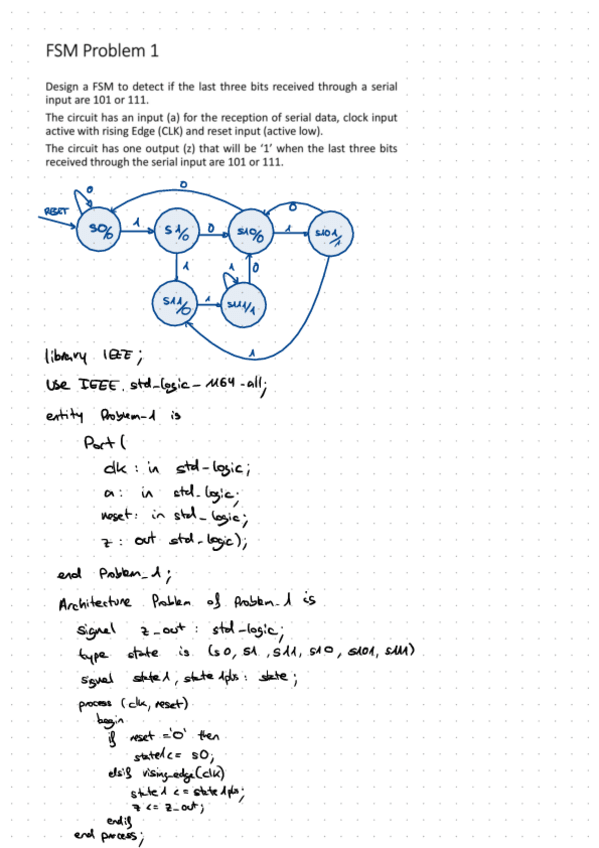 FSM Problem 1
Design a FSM to detect if the last three bits received through a serial
input are 101 or 111.
The circuit has an input (a) for the reception of serial data, clock input
active with rising Edge (CLK) and reset input (active low).
The circuit has one output (z) that will be ‘1’ when the last three bits
received through the serial input are 101 or 111.
0 0
RESET 0
S0/0 1 S1/0 0 S10/0 1 S101/1
1 1 0
S11/0 1 S111/1
1
library IEEE;
Use IEEE.std_logic_1164.all;
entity Problem_1 is
Port (
clk : in std_logic;
a : in std_logic;
reset : in std_logic;
z : out std_logic);
end Problem_1;
Architecture Problem of Problem_1 is
signal z_out : std_logic;
type state is (s0, s1, s11, s10, s101, s111)
signal state1, state1pls : state;
process (clk, reset)
begin
if reset = '0' then
state1 <= s0;
elsif rising_edge(clk)
state1 <= state1pls;
z <= z_out;
endif
end process;